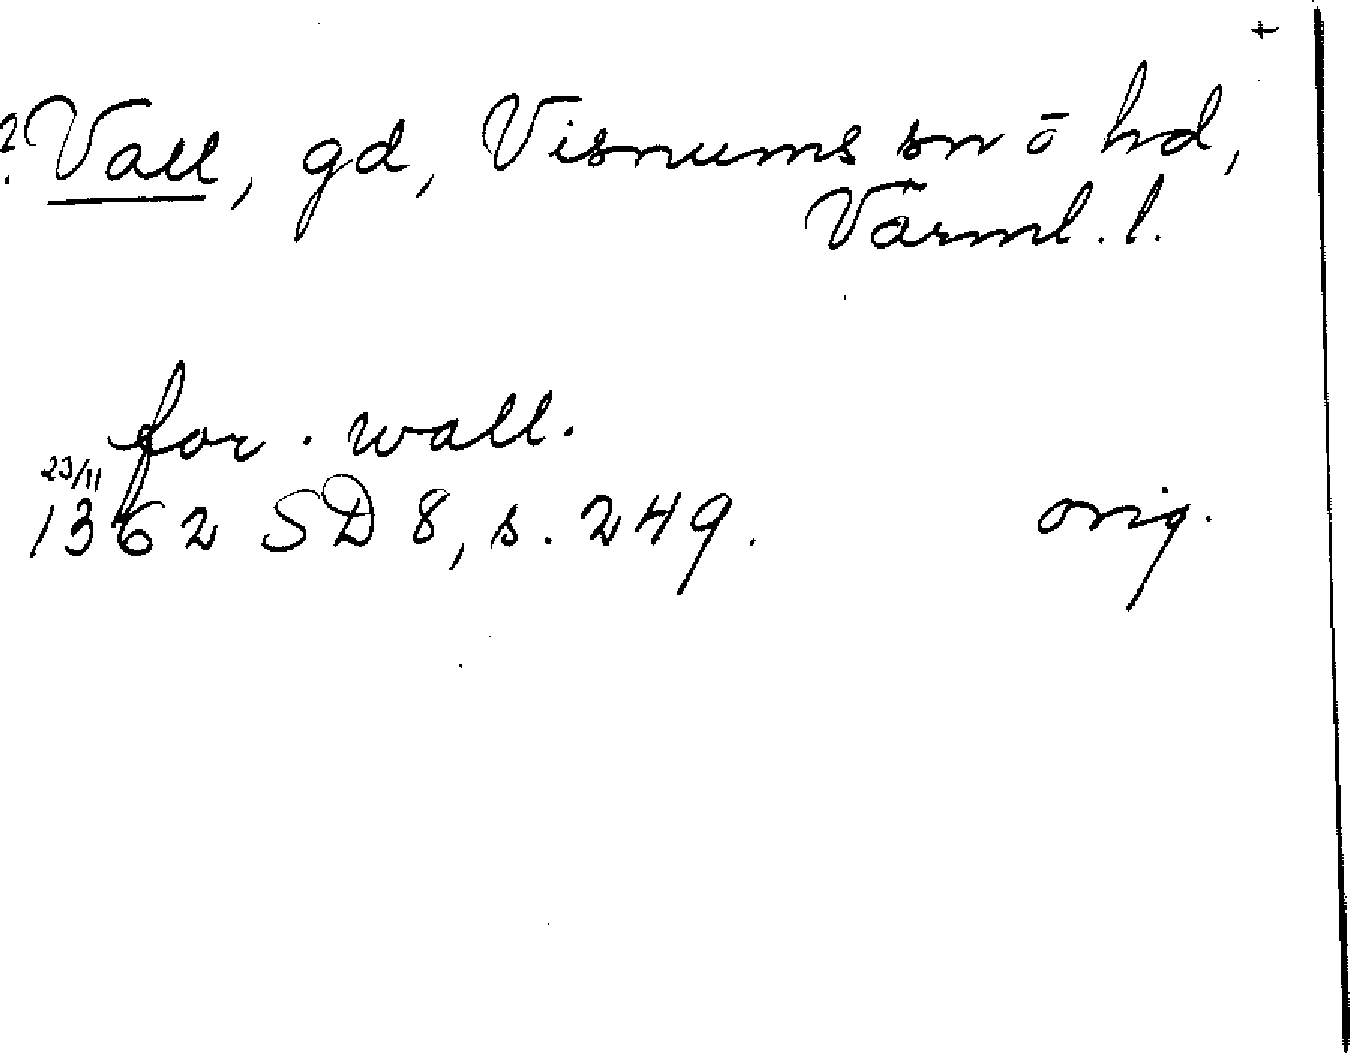 +
? Vall, gd, Visnums sn ō hd,
Värml. l.
for . wall.
23/11
1362 SD 8, s. 249. orig.